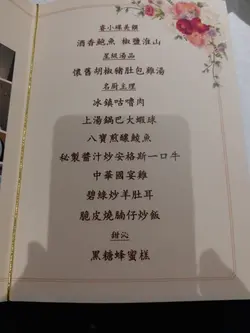 睿小碟美饌
酒香鮑魚 椒鹽淮山
星級湯品
懷舊胡椒豬肚包雞湯
名廚主理
冰鎮咕嚕肉
上湯鍋巴大蝦球
八寶煎釀鯪魚
秘製醬汁炒安格斯一口牛
中華國宴雞
碧綠炒羊肚耳
脆皮燒腩仔炒飯
甜沁
黑糖蜂蜜糕